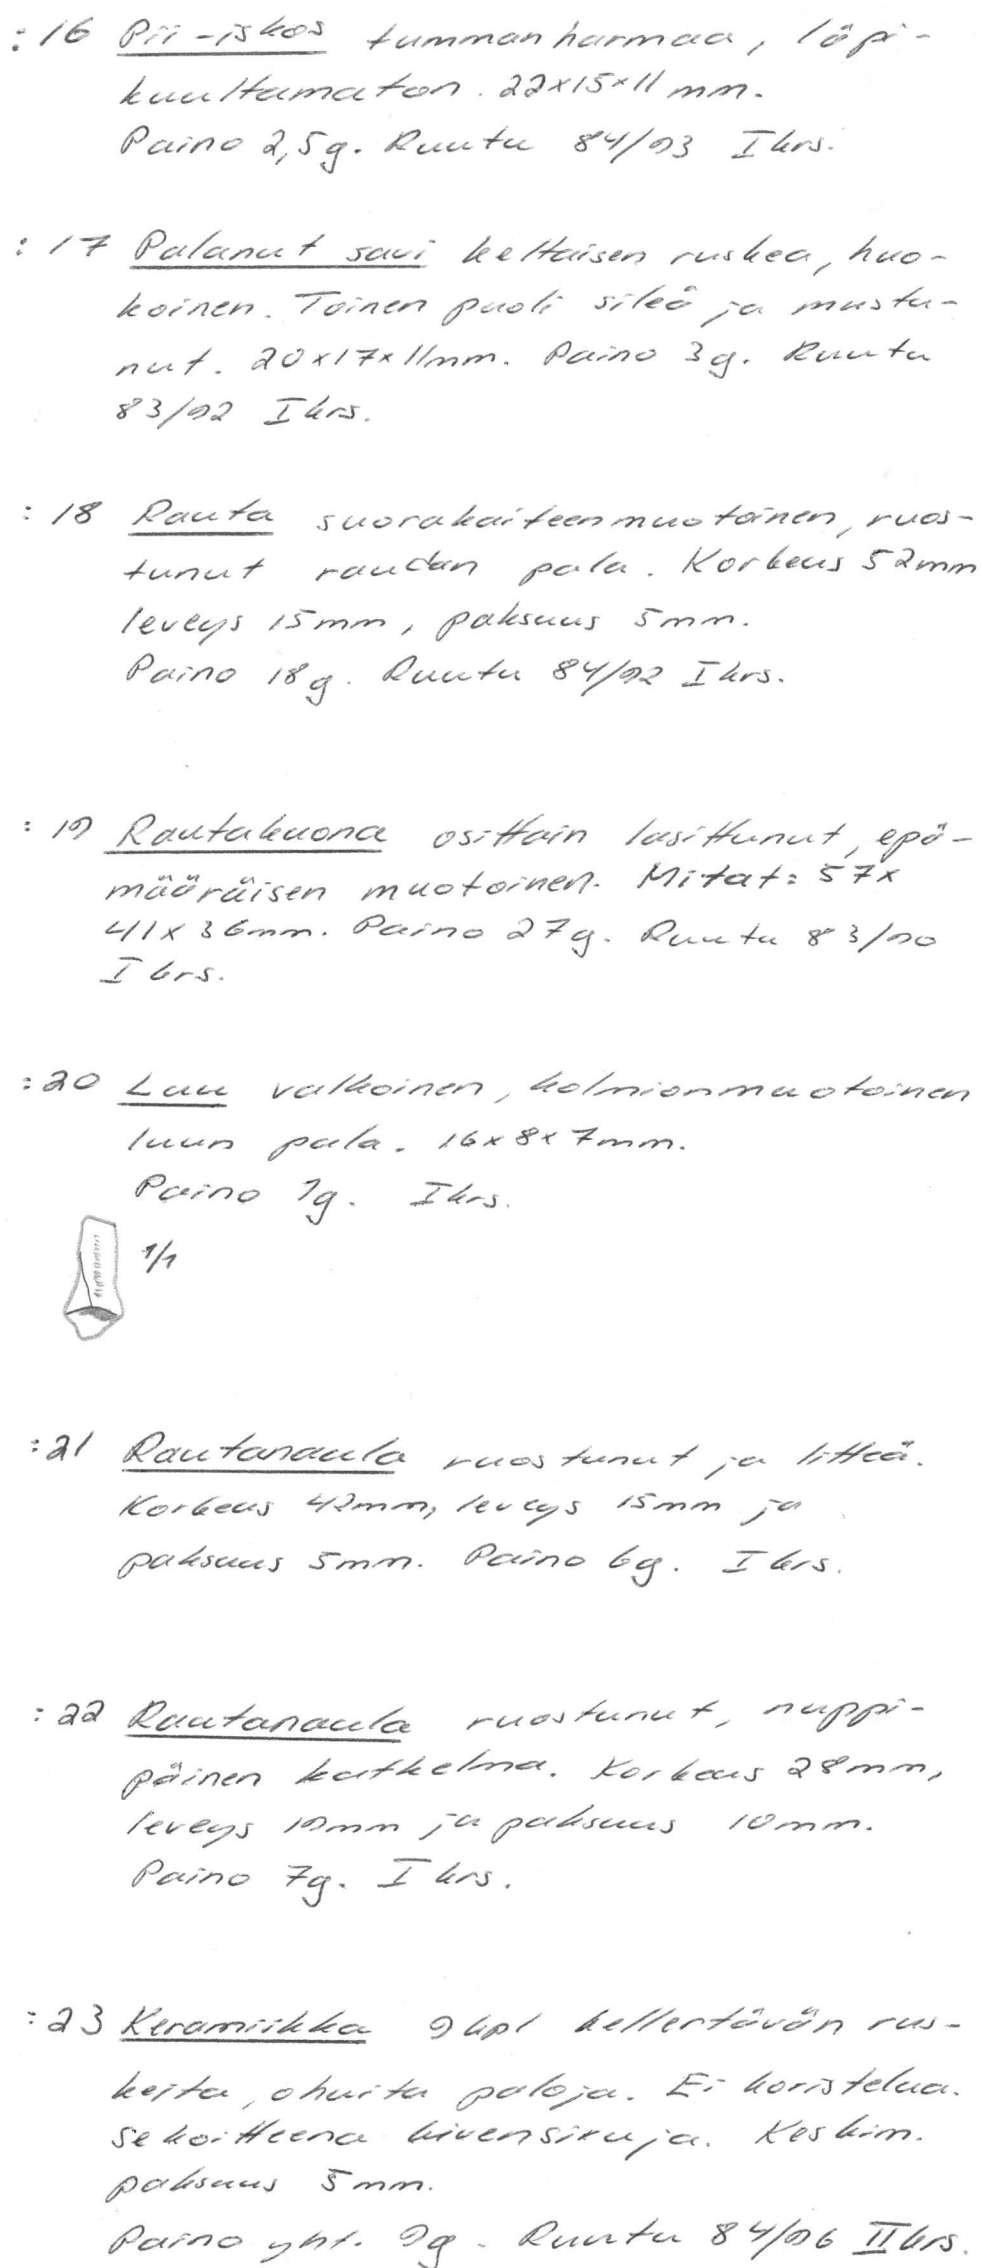 :16 Pii-iskos tummanharmaa, läpi-
kuultamaton. 22x15x11 mm.
Paino 2,5g. Ruutu 84/93 I krs.
:17 Palanut savi keltaisen ruskea, huo-
koinen. Toinen puoli sileä ja mustu-
nut. 20x17x11mm. Paino 3g. Ruutu
83/92 I krs.
:18 Rauta suorakaiteenmuotoinen, ruos-
tunut raudan pala. Korkeus 52mm
leveys 15mm, paksuus 5mm.
Paino 18g. Ruutu 84/92 I krs.
:19 Rautakuona osittain lasittunut, epä-
määräisen muotoinen. Mitat: 57x
41x36mm. Paino 27g. Ruutu 83/90
I krs.
:20 Luu valkoinen, kolmionmuotoinen
luun pala. 16x8x7mm.
Paino 1g. I krs.
1/1
:21 Rautanaula ruostunut ja litteä.
Korkeus 42mm, leveys 15mm ja
paksuus 5mm. Paino 6g. I krs.
:22 Rautanaula ruostunut, nuppi-
päinen katkelma. Korkeus 28mm,
leveys 19mm ja paksuus 10mm.
Paino 7g. I krs.
:23 Keramiikka 9 kpl kellertävän rus-
keita, ohuita paloja. Ei koristelua.
Sekoitteena kivensiruja. Keskim.
paksuus 5mm.
Paino yht. 9g. Ruutu 84/96 II krs.